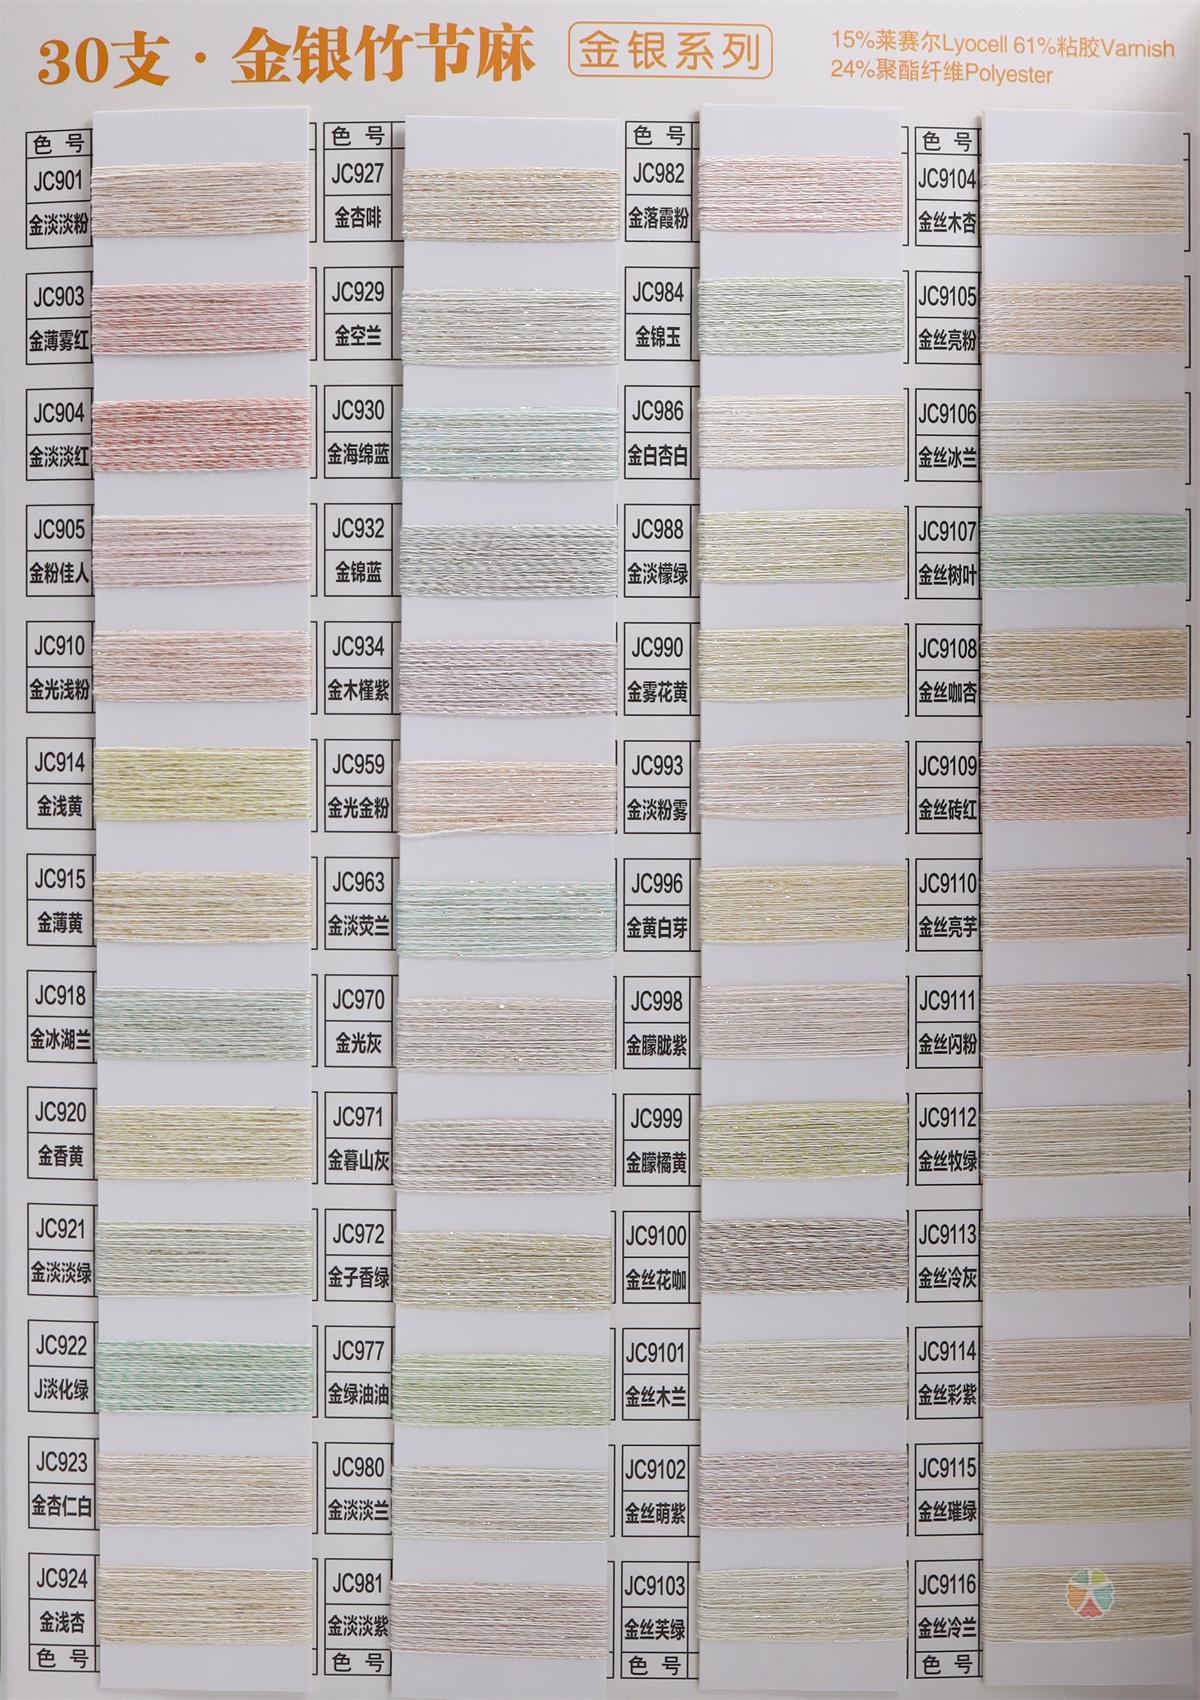 30支·金银竹节麻
金银系列
15%莱赛尔Lyocell 61%粘胶Varnish
24%聚酯纤维Polyester
色 号
JC901
金淡淡粉
JC903
金薄雾红
JC904
金淡淡红
JC905
金粉佳人
JC910
金光浅粉
JC914
金浅黄
JC915
金薄黄
JC918
金冰湖兰
JC920
金香黄
JC921
金淡淡绿
JC922
J淡化绿
JC923
金杏仁白
JC924
金浅杏
色 号
色 号
JC927
金杏啡
JC929
金空兰
JC930
金海绵蓝
JC932
金锦蓝
JC934
金木槿紫
JC959
金光金粉
JC963
金淡荧兰
JC970
金光灰
JC971
金暮山灰
JC972
金子香绿
JC977
金绿油油
JC980
金淡淡兰
JC981
金淡淡紫
色 号
色 号
JC982
金落霞粉
JC984
金锦玉
JC986
金白杏白
JC988
金淡檬绿
JC990
金雾花黄
JC993
金淡粉雾
JC996
金黄白芽
JC998
金朦胧紫
JC999
金朦橘黄
JC9100
金丝花咖
JC9101
金丝木兰
JC9102
金丝萌紫
JC9103
金丝芙绿
色 号
色 号
JC9104
金丝木杏
JC9105
金丝亮粉
JC9106
金丝冰兰
JC9107
金丝树叶
JC9108
金丝咖杏
JC9109
金丝砖红
JC9110
金丝亮芋
JC9111
金丝闪粉
JC9112
金丝牧绿
JC9113
金丝冷灰
JC9114
金丝彩紫
JC9115
金丝璀绿
JC9116
金丝冷兰
色 号